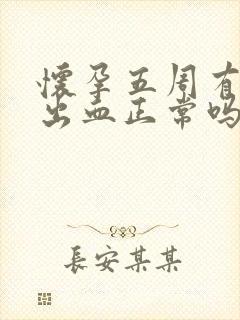 懷孕五周有
出血正常嗎
長安某某